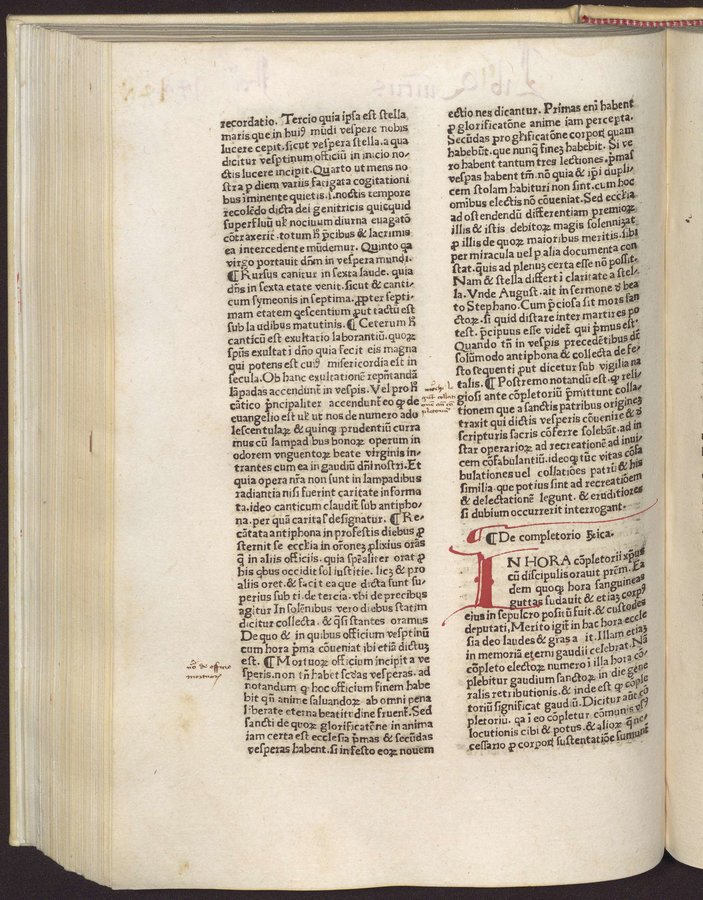 recordatio. Tercio quia ipsa est stella
maris que in huiꝰ mūdi vespere nobis
lucere cepit. sicut vespera stella. a qua
dicitur vesptinum officiū in inicio no-
ctis lucere incipit. Quarto ut mens no
stra ꝑ diem variis fatigata cogitationi
bus iminente quietis .i. noctis tempore
recolēdo dicta dei genitricis quicquid
superfluū uł nociuum diurna euagatō
cōtraxerit. totum pcibus & lacrimis
ea intercedente mūdemur. Quinto qa
virgo portauit dnm in vespera mundi.
¶ Rursus canitur in sexta laude. quia
dns in sexta etate venit. sicut & canti-
cum symeonis in septima. ꝓpter septi-
mam etatem qescentium ꝓut tactū est
sub laudibus matutinis. ¶ Ceterum
canticū est exultatio laborantiū. quoꝝ
spūs exultat i dno quia fecit eis magna
qui potens est cuiꝰ misericordia est in
secula. Ob hanc exultationē repñtandā
lāpadas accendunt in vespis. Vel pro
cātico pncipaliter accendunt eo ꝙ de
euangelio est uł ut nos de numero ado
lescentulaꝝ & quinqꝫ prudentiū curra
mus cū lampadibus bonoꝝ operum in
odorem vnguentoꝝ beate virginis in-
trantes cum ea in gaudiū dñi nostri. Et
quia opera nra non sunt in lampadibus
radiantia nisi fuerint caritate informa
ta. ideo canticum claudit sub antipho-
na. per quā caritas designatur. ¶ Re-
cātata antiphona in profestis diebus ꝓ
sternit se ecclia in orōnez ꝓlixius oras
ꝗ in aliis officiis. quia spēaliter orat ꝓ
his qbus occidit sol iustitie. licꝫ & pro
aliis oret. & facit ea que dicta sunt su-
perius sub ti. de tercia. vbi de precibus
agitur In solēnibus vero diebus statim
dicitur collecta. & qsi stantes oramus
De quo & in quibus officium vesptinū
cum hora pma cōueniat ibi etiā dictuꝫ
est. ¶ Mortuoꝝ officium incipit a ve
speris. non tn habet scdas vesperas. ad
notandum ꝙ hoc officium finem habe
bit qn anime saluandoꝝ ab omni pena
liberate eterna beatitudine fruent. Sed
sancti de quoꝝ glorificatōne in anima
iam certa est ecclesia pmas & secūdas
vesperas habent. si in festo eoꝝ nouem
no de offino
mortuoꝝ
ectiones dicantur. Primas eni habent
ꝓ glorificatōne anime iam percepta.
Secūdas pro glificatōne corpoꝝ quam
habebūt. que nunꝗ fineꝫ habebit. Si ve
ro habent tantum tres lectiones. pmas
vespas habent tm. nō quia & ipi dupli-
cem stolam habituri non sint. cum hoc
omibus electis nō cōueniat. Sed ecclia
ad ostendendū differentiam premioꝝ
illis & istis debitoꝝ magis solennizat
ꝓ illis de quoꝝ maioribus meritis. sibi
per miracula uel ꝑ alia documenta con
stat. quis ad plenuꝫ certa esse nō possit.
Nam & stella differt i claritate a stel-
la. Vnde August. ait in sermone ꝺ bea
to Stephano. Cum pciosa sit mors san
ctoꝝ. si quid distare inter martires po
test. pcipuus esse videt qui pmus est.
Quando tn in vespis precedētibus dt
solūmodo antiphona & collecta de fe-
sto sequenti ꝓut dicetur sub vigilia na
talis. ¶ Postremo notandū est. ꝙ reli-
giosi ante cōpletoriū pmittunt colla-
tionem que a sanctis patribus origineꝫ
traxit qui dictis vesperis cōuenire & ꝺ
scripturis sacris cōferre solebāt. ad in
star operarioꝝ ad recreationē ad inui-
cem cōfabulantiū. ideoqꝫ tūc vitas cōfa
bulationes uel collatiōes patrū & his
similia que potius sint ad recreatiōem
& delectationē legunt. & eruditiores
si dubium occurrerit interrogant.
¶ De completorio ꝶica.
IN HORA cōpletorii xpus
cū discipulis orauit prēm. Ea
dem quoqꝫ hora sanguineas
guttas sudauit & etiaꝫ corpꝰ
eius in sepulcro positū fuit. & custodes
deputati, Merito igit in hac hora eccle
sia deo laudes & gras agit. Illam etiaꝫ
in memoriā eterni gaudii celebrat. Nā
cōpleto electoꝝ numero i illa hora cō-
plebitur gaudium sanctoꝝ in die gene
ralis retributionis. & inde est ꝙ cōple
toriū significat gaudiū. Dicitur aūt cō
pletoriū. qa i eo cōpletur cōmunis vsꝰ
locutionis cibi & potus. & alioꝝ ꝗ ne-
cessario ꝓ corporꝭ sustentatiōe sumunt